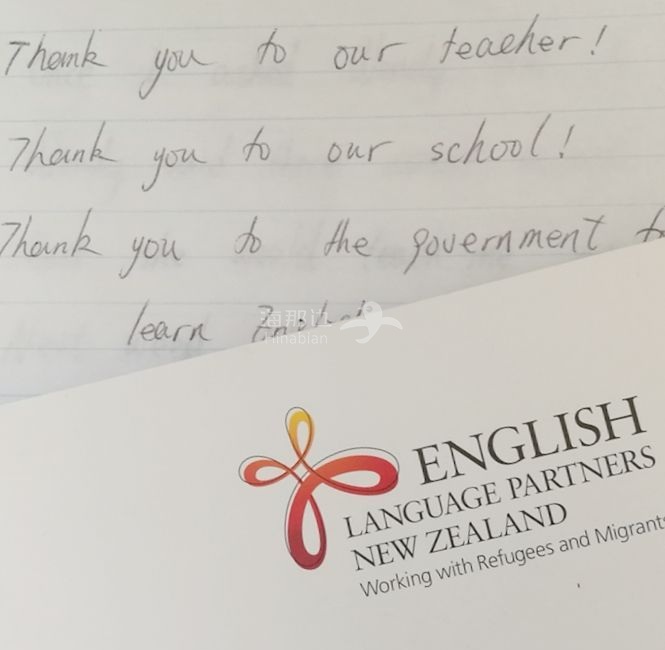 Thank you to our teacher!
Thank you to our school!
Thank you to the government
learn
海那边
Hinabian
ENGLISH
LANGUAGE PARTNERS
NEW ZEALAND
Working with Refugees and Migrants